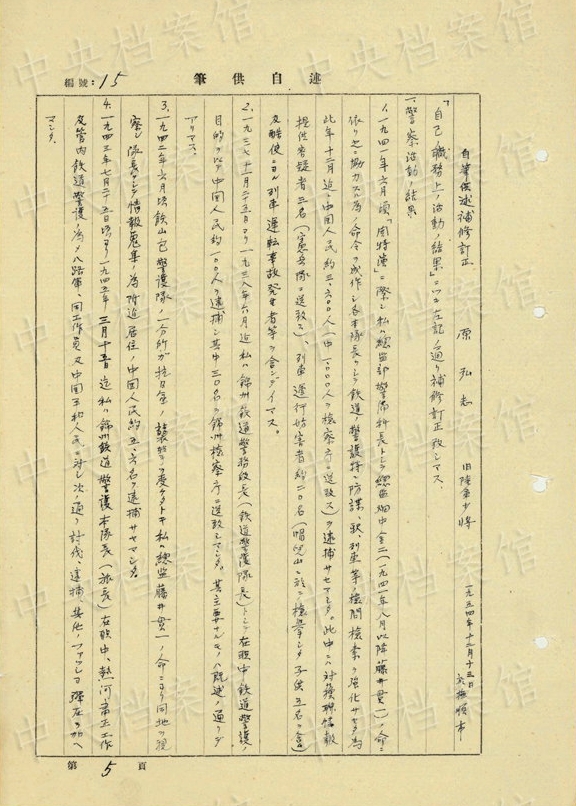 述自供筆
編號：15
自筆供述補修訂正
一九五四年十二月十三日 於撫順市
原弘志 旧陸軍少将
「自己ノ職務上ノ活動ノ結果」ニツキ左記ノ通リ補修訂正致シマス。
一、警察活動ノ結果
1、一九四一年六月頃「関特演」ニ際シ私ハ総監部警務科長トシテ総監畑中金二(一九四一年八月以降藤井貫一)ノ命ニ
依リ之ニ協力スル為ノ命令ヲ作シ各本隊長ヲシテ鉄道ノ警護特ニ防諜、列車等ノ検問検索ヲ強化サセタ為
此年十二月迄ニ中国人民約三、六〇〇人(中一、〇〇〇人ヲ検察庁ニ送致ス)ヲ逮捕サセマシタ。此中ニハ対蘇聯情報
提供容疑者三名(憲兵隊ニ送致ス)、列車運行妨害者約二〇名(ニ於テ検挙シタ子供五名ヲ含ム)
及酷使ニヨル列車運転事故発生者等ヲ含ンデイマス。
2、一九三七年十二月二十五日ヨリ一九三八年六月迄私ハ錦州鉄道警務段長(鉄道警護隊長)トシテ在職中鉄道警護ノ
目的ヲ以テ中国人民約一〇〇人ヲ逮捕シ其中三〇名ヲ錦州検察庁ニ送致シマシタ。其主要ナルモノハ既述ノ通リデ
アリマス。
3、一九四二年六月頃鉄山包警護隊ノ一分所ガ抗日軍ノ襲撃ヲ受ケタトキ私ハ総監藤井貫一ノ命ニヨリ同地ヲ視
察シ隊長ヲシテ情報蒐集ノ為附近居住ノ中国人民約五、六名ヲ逮捕サセマシタ。
4、一九四三年七月二十五日頃ヨリ一九四五年三月十五日迄私ハ錦州鉄道警護本隊長(旅長)在職中、熱河粛正工作
及管内鉄道警護ノ為メ八路軍、同工作員及中国平和人民ニ対シ次ノ通リ討伐、逮捕其他ノファッショ弾圧ヲ加ヘ
マシタ。
第5頁
中央档案馆